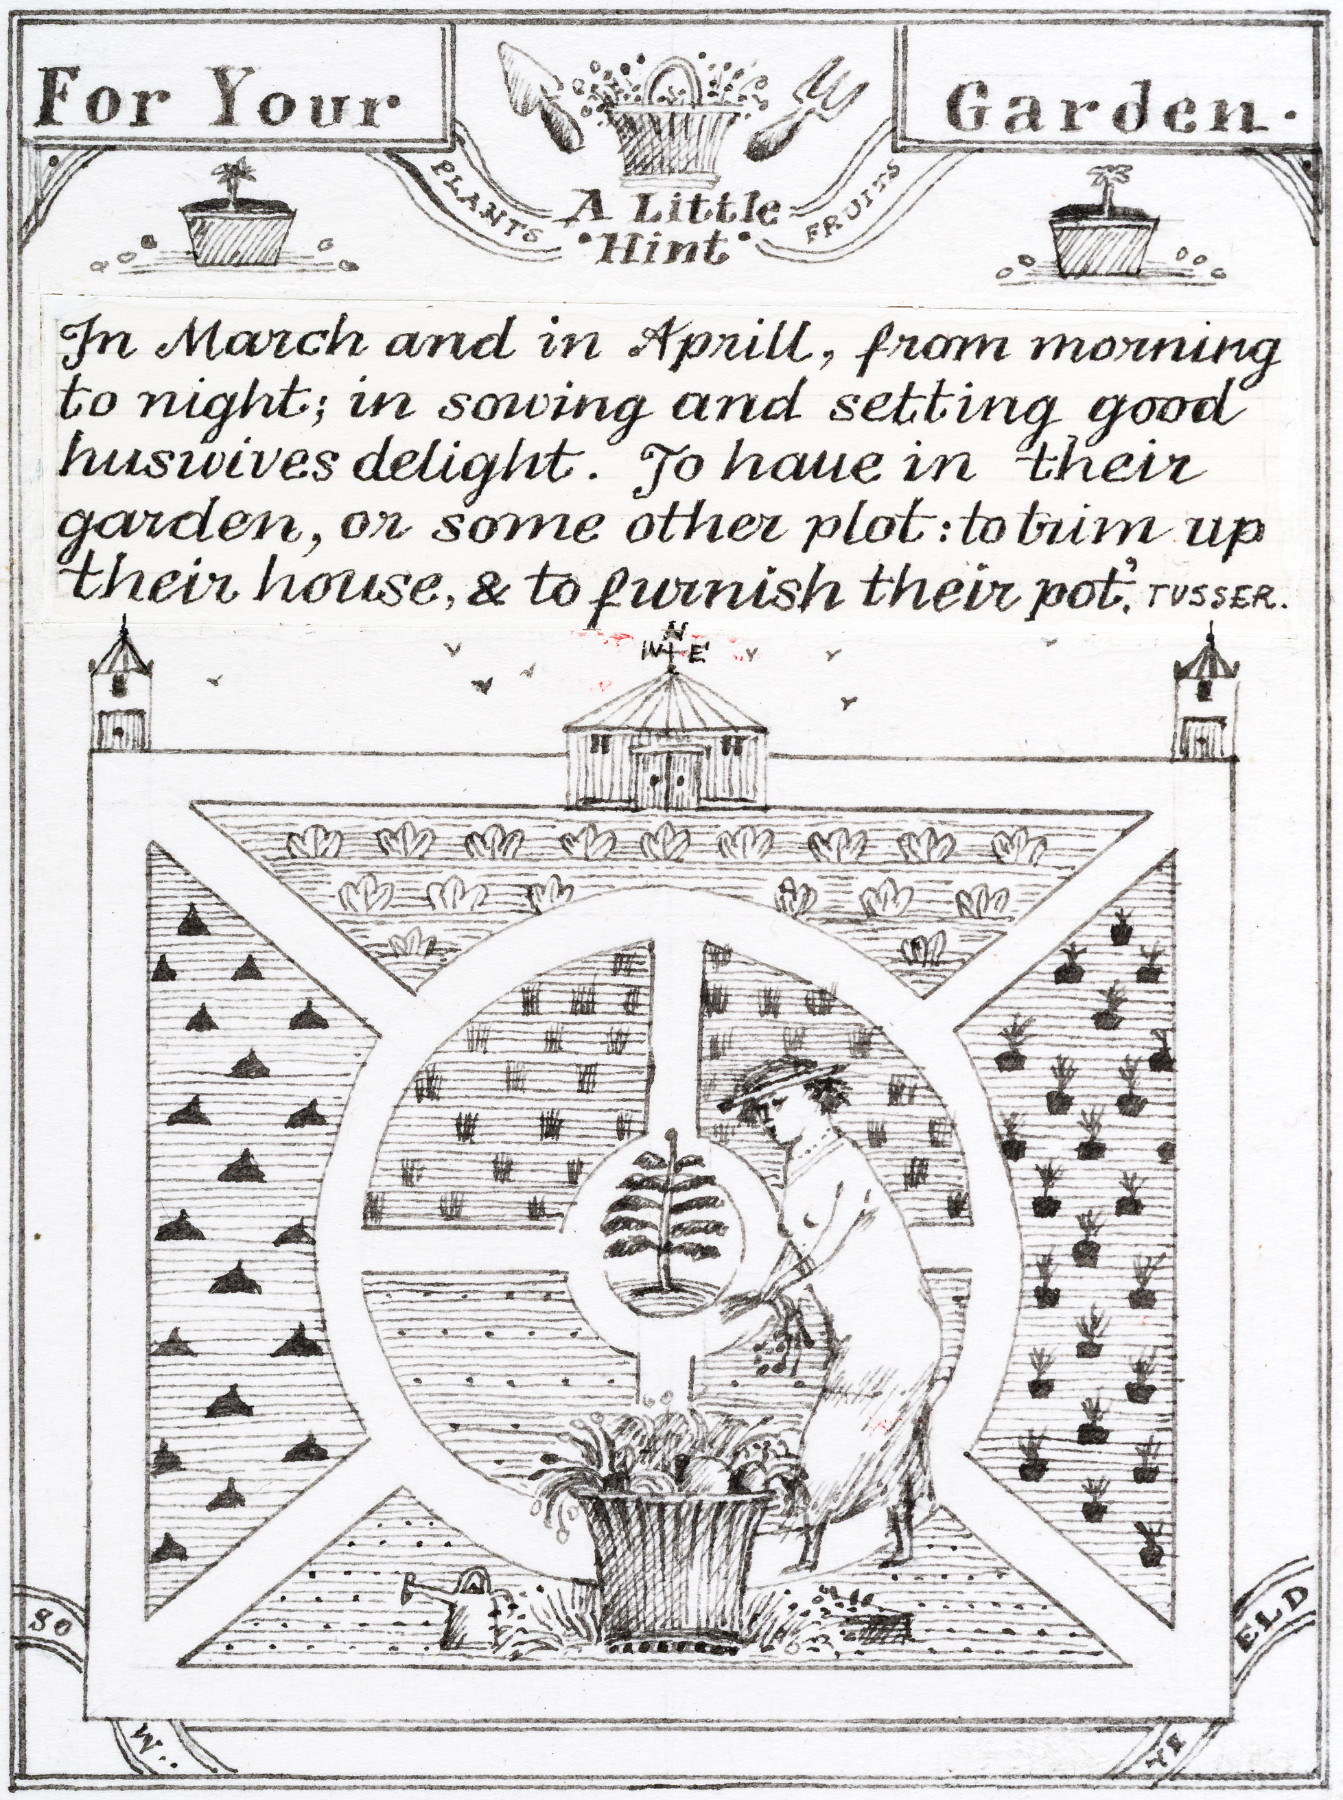 For Your
Garden.
PLANTS
A Little
FRUITS
·Hint·
In March and in Aprill, from morning
to night; in sowing and setting good
huswives delight. To haue in their
garden, or some other plot: to trim up
their house, & to furnish their pot.’ TUSSER.
N
W E
SO
W..
YE
ELD